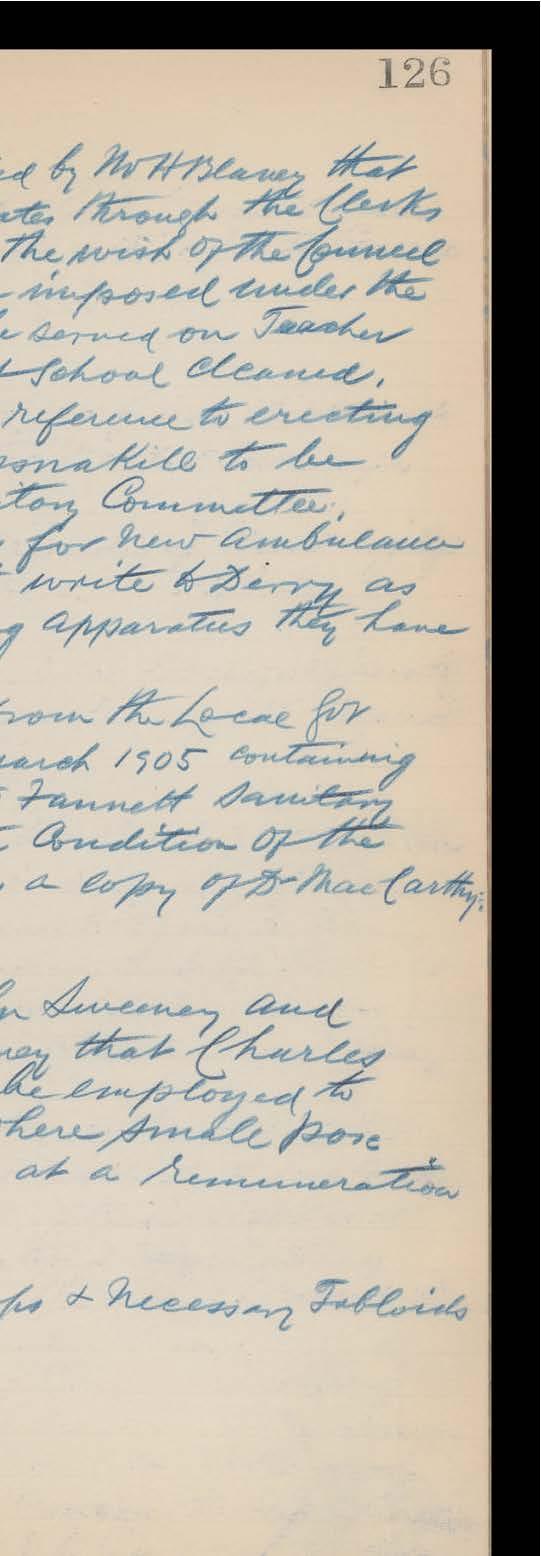 126
ed by Mr H Blaney that
ates through the Clerks
the wish of the Council
imposed under the
served on Teacher
School cleaned.
reference to erecting
to be
Committee.
for New Ambulance
write to Derry as
apparatus they have
from the Local Gov
March 1905 containing
Fannett Sanitary
Condition of the
a copy of Dr MacCarthy's
Sweeney and
that Charles
be employed to
where small pox
at a remuneration
& necessary Tabloids